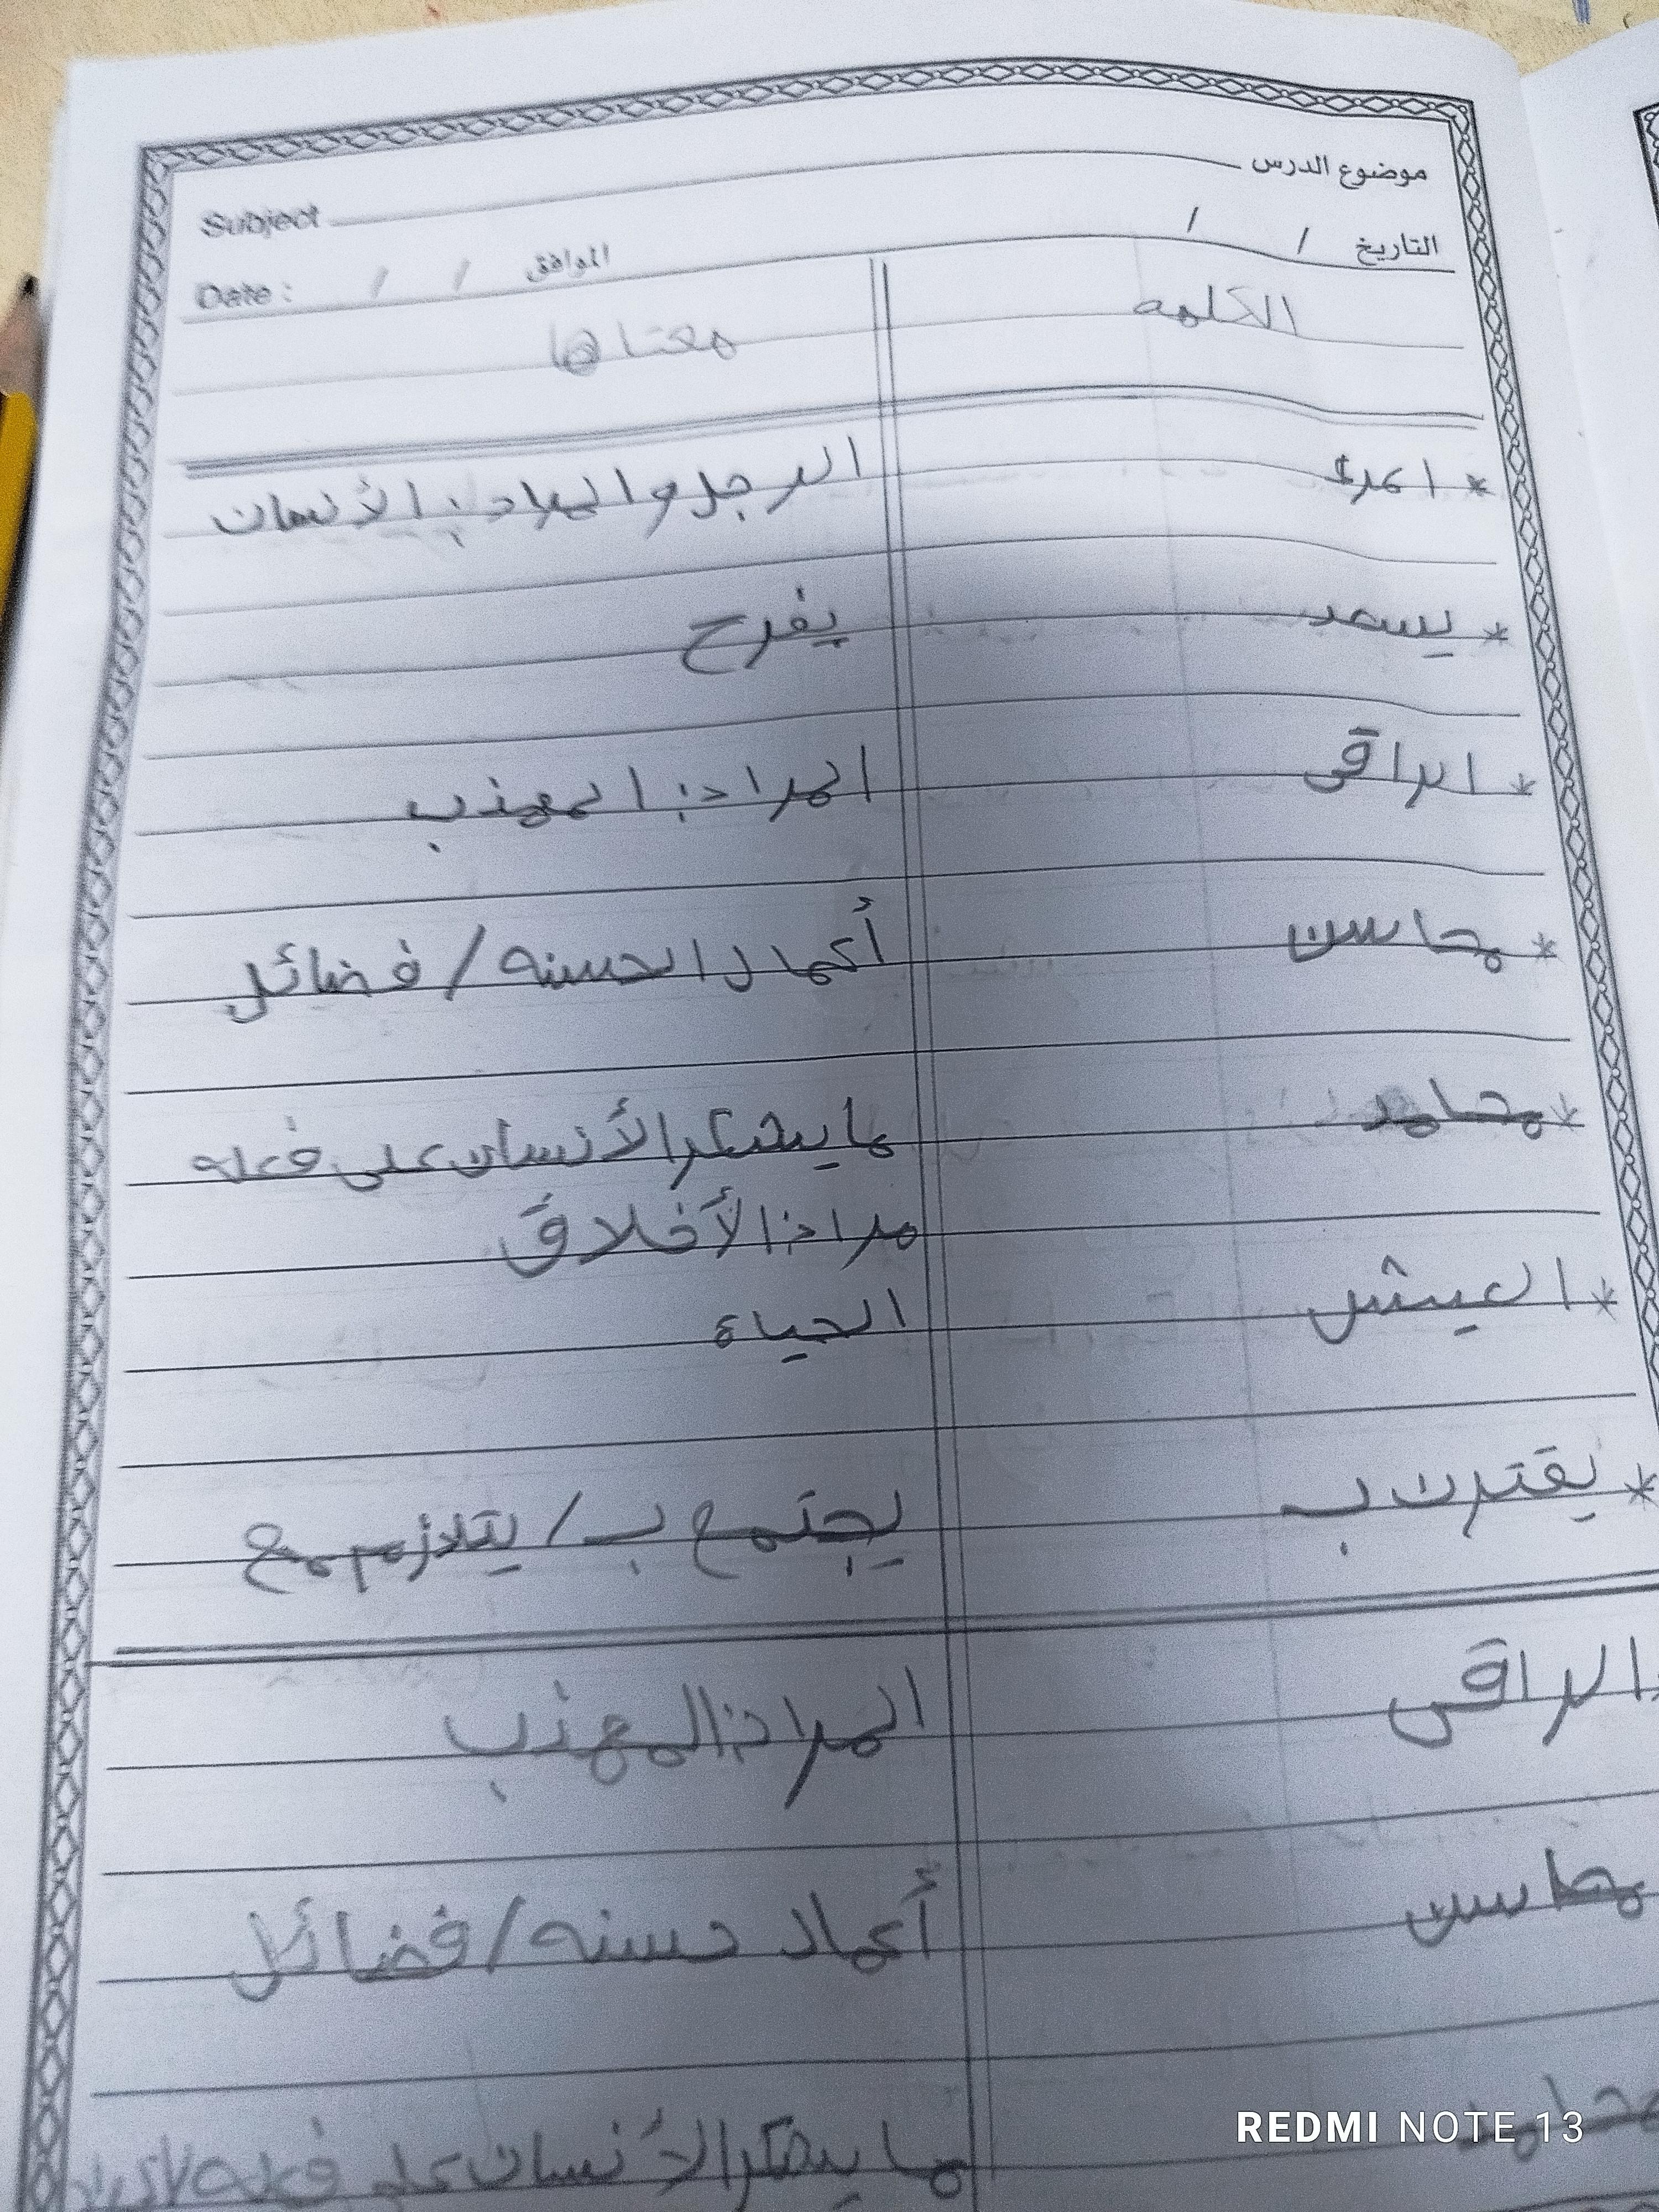 موضوع الدرس Subject
التاريخ / / الموافق / / Date :
الكلمه معناها
* امرئ الرجل والمراد: الأنسان
* يسعد يفرح
* الراقى المراد: المهذب
* محاسن أعمال الحسنه / فضائل
* محامد ما يشكر الأنسان على فعله
مراد: الأخلاق
* العيش الحياة
* يقترن ب يجتمع ب / يتلازم مع
الراقى المراد: المهذب
محاسن أعمال حسنه / فضائل
محامد ما يشكر الأنسان على فعله
REDMI NOTE 13